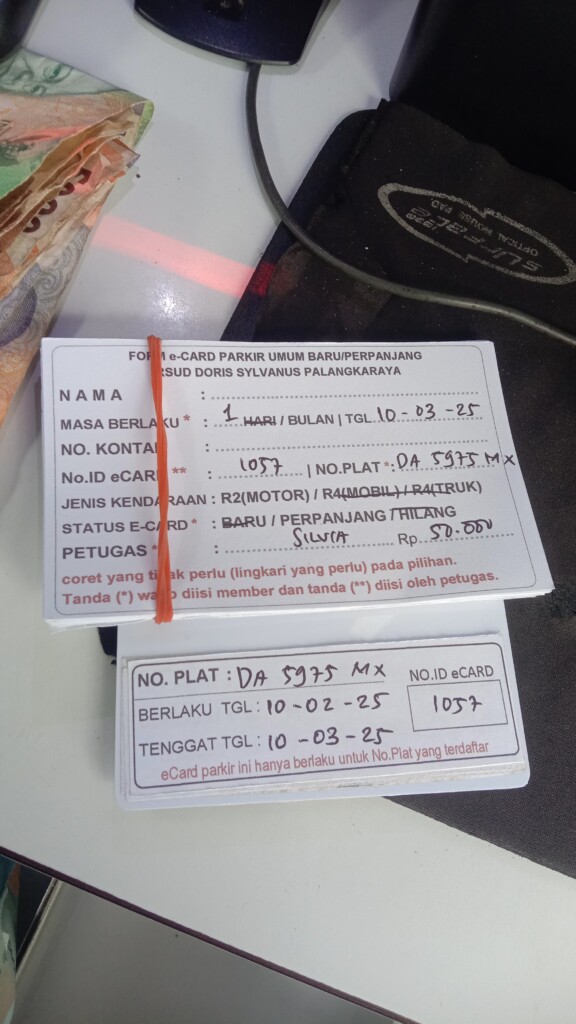 FORM e-CARD PARKIR UMUM BARU/PERPANJANG
RSUD DORIS SYLVANUS PALANGKARAYA
NAMA :
MASA BERLAKU * : 1 HARI / BULAN | TGL. 10-03-25
NO. KONTAK :
No.ID eCARD ** : 1057 | NO.PLAT *: DA 5975 MX
JENIS KENDARAAN : R2(MOTOR) / R4(MOBIL) / R4(TRUK)
STATUS E-CARD * : BARU / PERPANJANG / HILANG
PETUGAS * : SILVIA Rp. 50.000
coret yang tidak perlu (lingkari yang perlu) pada pilihan.
Tanda (*) wajib diisi member dan tanda (**) diisi oleh petugas.
NO. PLAT : DA 5975 MX
NO.ID eCARD
1057
BERLAKU TGL : 10-02-25
TENGGAT TGL : 10-03-25
eCard parkir ini hanya berlaku untuk No.Plat yang terdaftar
OPTICAL MOUSE PAD